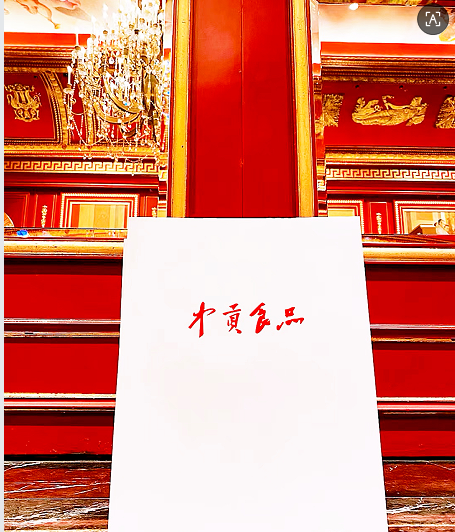 中贡食品